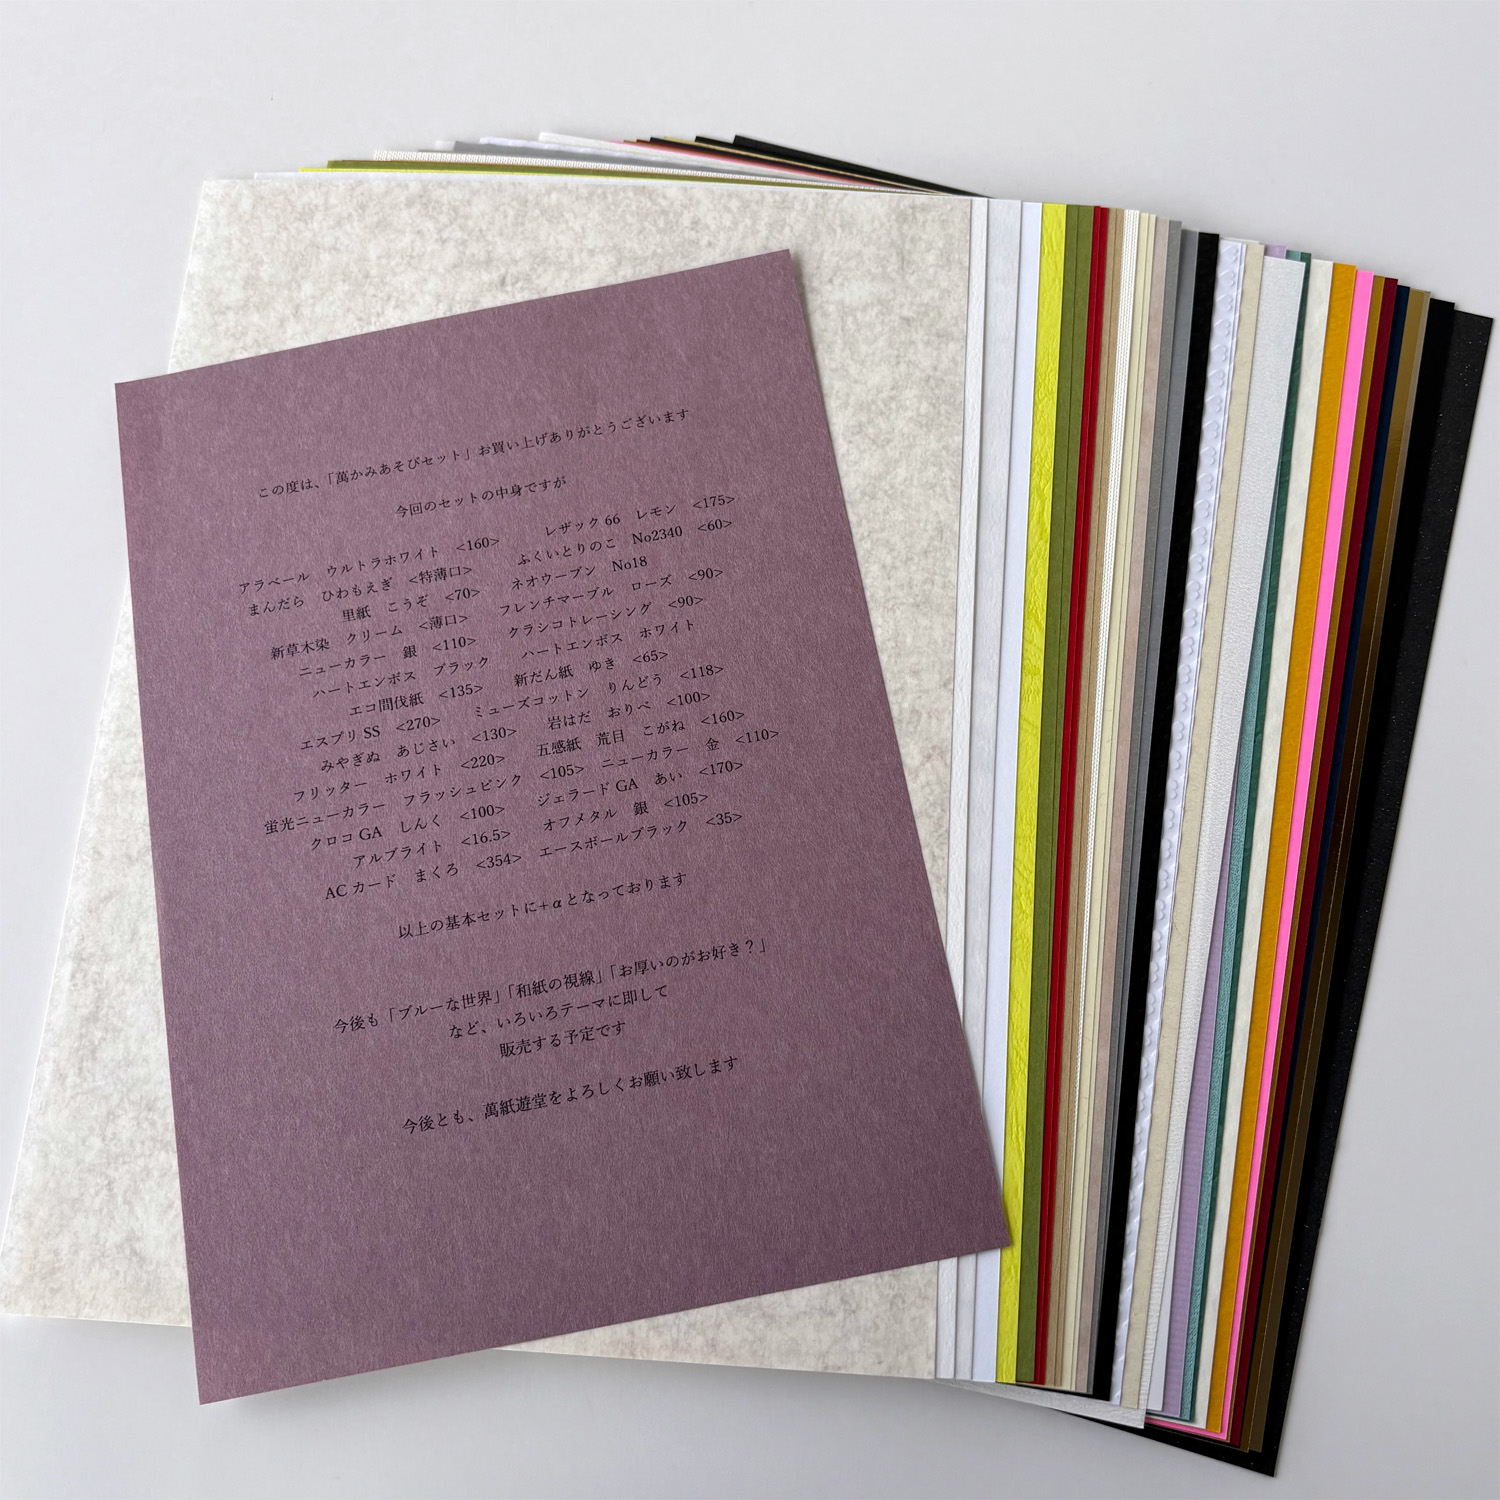 この度は、「萬かみあそびセット」お買い上げありがとうございます
今回のセットの中身ですが
アラベール　ウルトラホワイト　<160>　　レザック66　レモン　<175>
まんだら　ひわもえぎ　<特薄口>　　ふくいとりのこ　No2340　<60>
里紙　こうぞ　<70>　　ネオウーブン　No18
新草木染　クリーム　<薄口>　　フレンチマーブル　ローズ　<90>
ニューカラー　銀　<110>　　クラシコトレーシング　<90>
ハートエンボス　ブラック　　ハートエンボス　ホワイト
エコ間伐紙　<135>　　新だん紙　ゆき　<65>
エスプリSS　<270>　　ミューズコットン　りんどう　<118>
みやぎぬ　あじさい　<130>　　岩はだ　おりべ　<100>
フリッター　ホワイト　<220>　　五感紙　荒目　こがね　<160>
蛍光ニューカラー　フラッシュピンク　<105>　ニューカラー　金　<110>
クロコGA　しんく　<100>　　ジェラードGA　あい　<170>
アルブライト　<16.5>　　オフメタル　銀　<105>
ACカード　まくろ　<354>　エースボールブラック　<35>
以上の基本セットに+αとなっております
今後も「ブルーな世界」「和紙の視線」「お厚いのがお好き？」
など、いろいろテーマに即して
販売する予定です
今後とも、萬紙遊堂をよろしくお願い致します